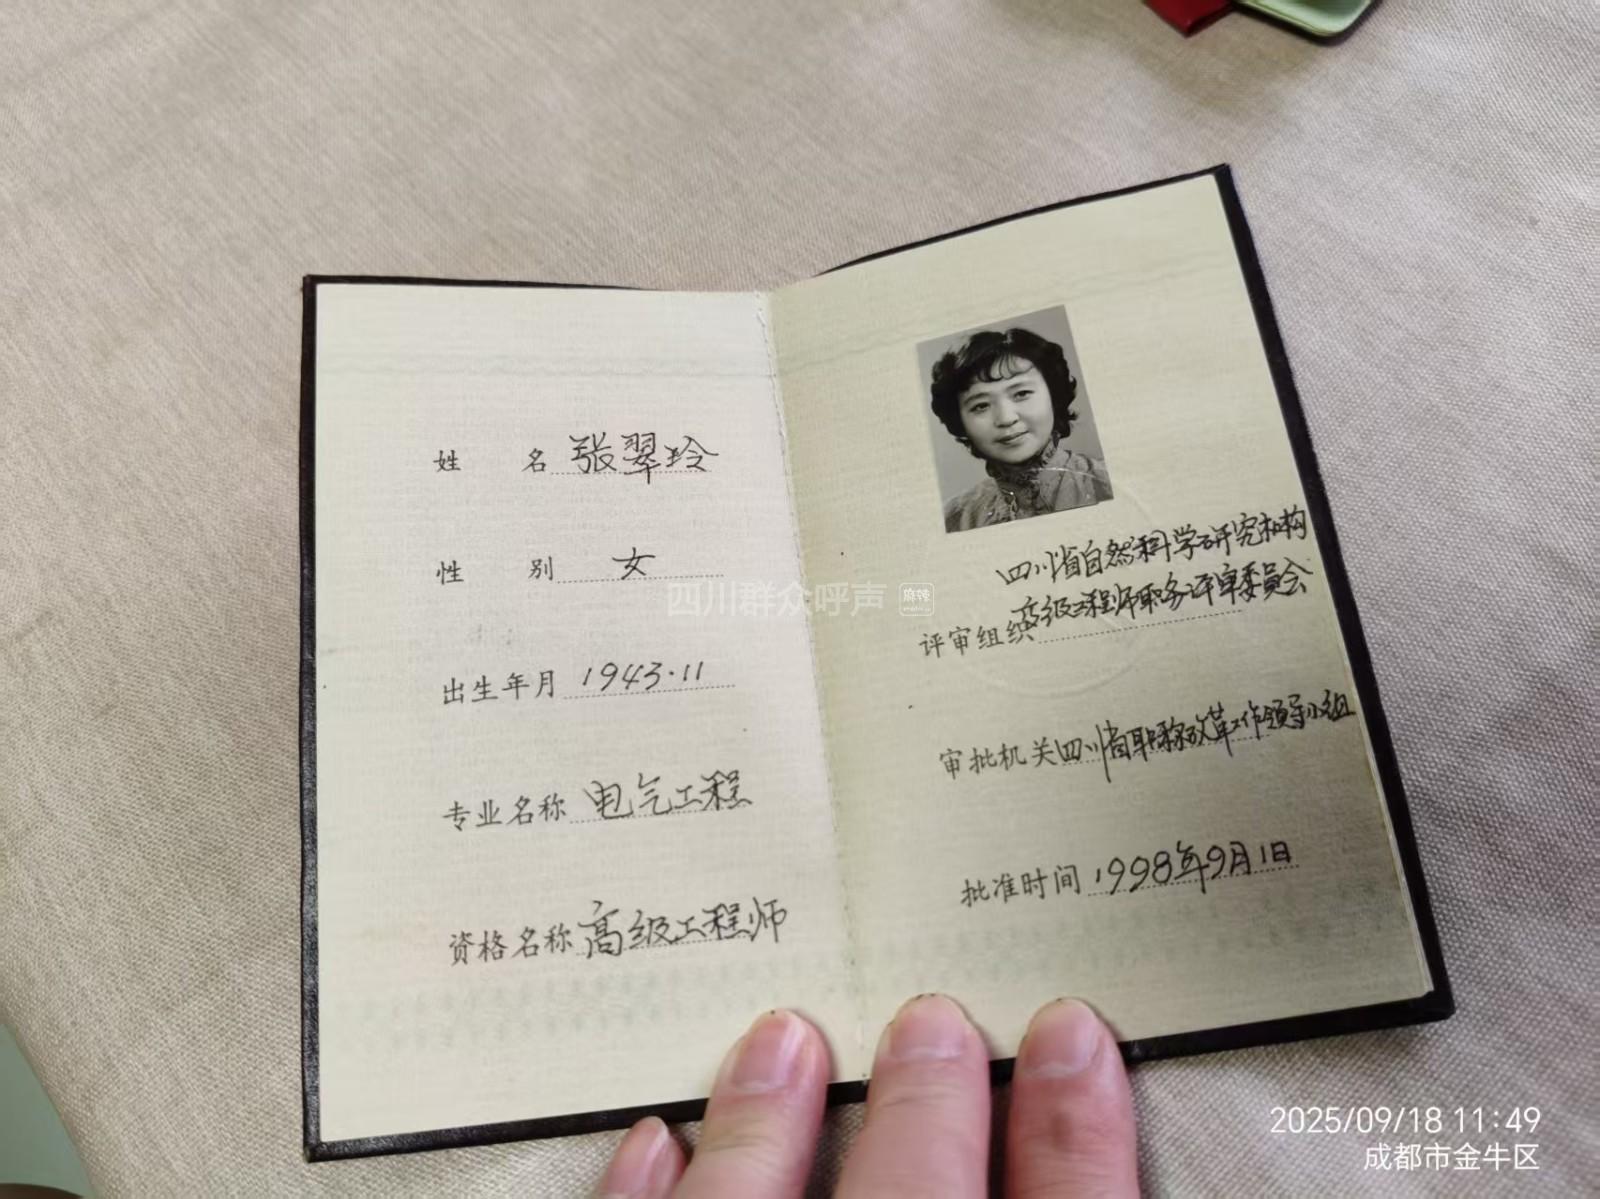 姓 名 张翠玲
性 别 女
出生年月 1943.11
专业名称 电气工程
资格名称 高级工程师
四川省自然科学研究机构
评审组织 高级工程师职务评审委员会
审批机关 四川省职称改革工作领导小组
批准时间 1998年9月1日
四川群众呼声 麻辣
2025/09/18 11:49
成都市金牛区